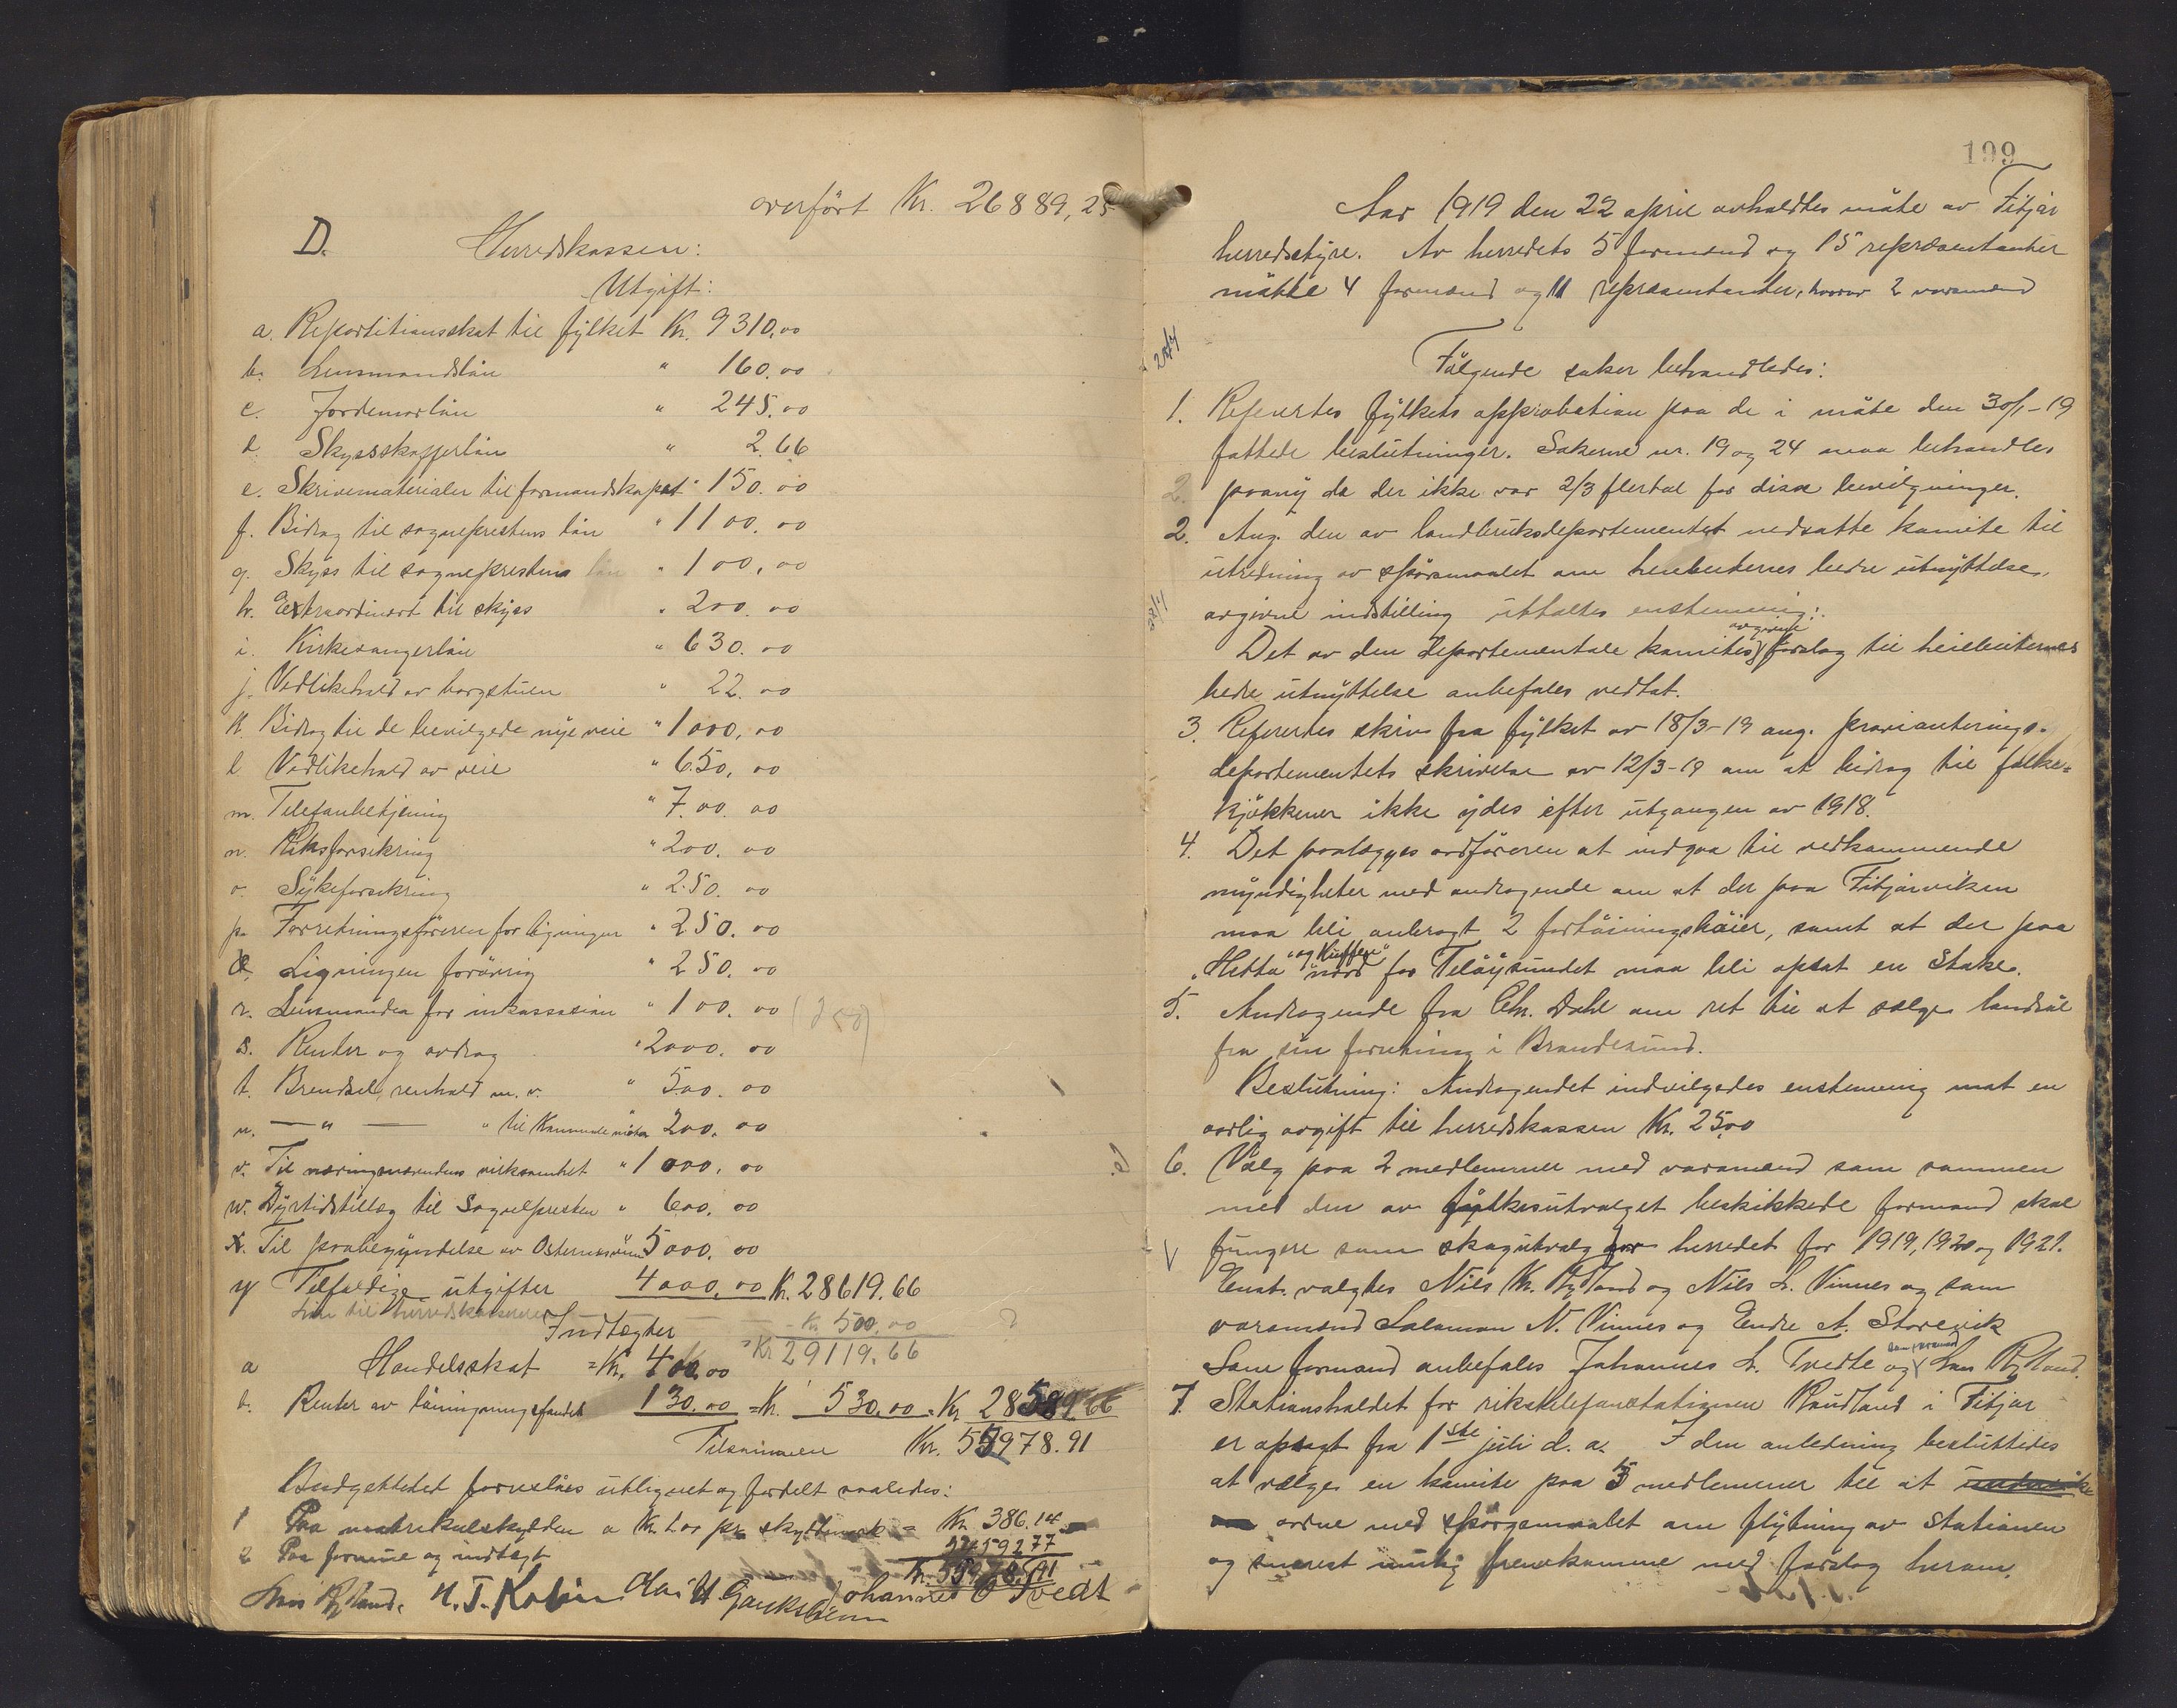 overført Kr. 26889,25
D. Herredskassen:
Utgift:
a. Repartitionsskat til fylket Kr. 9310.00
b. Lensmandsløn " 160.00
c. Jordemorløn " 245.00
d. Skysskafferløn " 2.66
e. Skrivematerialer til formandskapet " 150.00
f. Bidrag til sogneprestens løn " 1100.00
g. Skyss til sogneprestens løn " 100.00
h. Extraordinært til skyss " 200.00
i. Kirkesangerløn " 630.00
j. Vedlikehold av borgstuen " 22.00
k. Bidrag til de bevilgede nye veie " 1000.00
l Vedlikehold av veie " 650.00
m. Telefonbetjening " 700.00
n. Riksforsikring " 200.00
o. Sykeforsikring " 250.00
p. Forretningsføreren for ligningen " 250.00
q. Ligningen forøvrig " 250.00
r. Lensmanden for inkassasion " 100.00
s. Renter og avdrag " 2000.00
t. Brendsel, renhold m.v. " 500.00
u. — " — " til Kommunelokalet 200.00
v. Til næringsnævndens virksomhet " 1000.00
w. Dyrtidstillæg til Sognepresten " 600.00
x. Til paabegyndelse av 5000.00
y Tilfældige utgifter 4000.00 K. 28619.66
Løn til herredskassereren - Kr 500.00
Indtægter = Kr 29119.66
a Handelsskat = Kr. 400.00
b. Renter av 130.00 = K. 530.00 = Kr 28589.66
Tilsammen Kr. 55978.91
Budgettedet foreslaaes utlignet og fordelt saaledes:
1 Paa matrikulskylden a Kr. 1.00 pr skyldmark = Kr. 386.14
2 Paa formue og indtægt 5559277
Kr. 55978.91
Lars Rydland. N. J. Johannes O Tvedt
199
Aar 1919 den 22 april avholdtes møte av Fitjar
herredsstyre. Av herredets 5 formænd og 15 repræsentanter
møtte 4 formænd og 11 repræsentanter, hvorav 2 varamænd
Følgende saker behandledes:
1. Refertes fylkets approbation paa de i møte den 30/1-19
fattede beslutninger. Sakerne nr. 19 og 24 maa behandles
paany da der ikke var 2/3 flertal for disse bevilgninger.
2. Ang. den av landbruksdepartementet nedsatte komite til
utredning av spørsmaalet om heiebeiternes bedre utnyttelse,
avgivne indstilling uttaltes enstemmig:
avgivne
Det av den departementale komites forslag til heiebeiternes
bedre utnyttelse anbefales vedtat.
3. Refertes skriv fra fylket av 18/3-19 ang. provianterings-
departementets skrivelse av 12/3-19 om at bidrag til folke-
kjøkkener ikke ydes efter utgangen av 1918.
4. Det paalægges ordføreren at indgaa til vedkommende
myndigheter med andragende om at der paa Fitjarviken
maa bli anbragt 2 fortøiningsbøier, samt at der paa
"og Kuffen"
"Hetta" nord for Teløysundet maa bli opsat en Stake.
5. Andragende fra Chr. Dahl om ret til at sælge landsøl
fra sin forretning i Brandesund.
Beslutning: Andragendet indvilgedes enstemmig mot en
aarlig avgift til herredskassen Kr. 25,00
6. Valg paa 2 medlemmer med varamænd som sammen
med den av fylkesutvalget beskikkede formand skal
fungere som skogutvalg for herredet for 1919, 1920 og 1921.
Enst. valgtes Nils K. Rydland og Nils L. Vinnes og som
varamænd Salamon N. Vinnes og Endre A. Storevik
som varamand
Som formand anbefales Johannes L. Tvedte og Lars Rydland.
7. Stationsholdet for rikstelefonstationen Rautland i Fitjar
er opsagt fra 1ste juli d.a. I den anledning besluttedes
at vælge en komite paa 5 medlemmer til at
ordne med spørgsmaalet om flytning av stationen
og snarest mulig fremkomme med forslag herom.